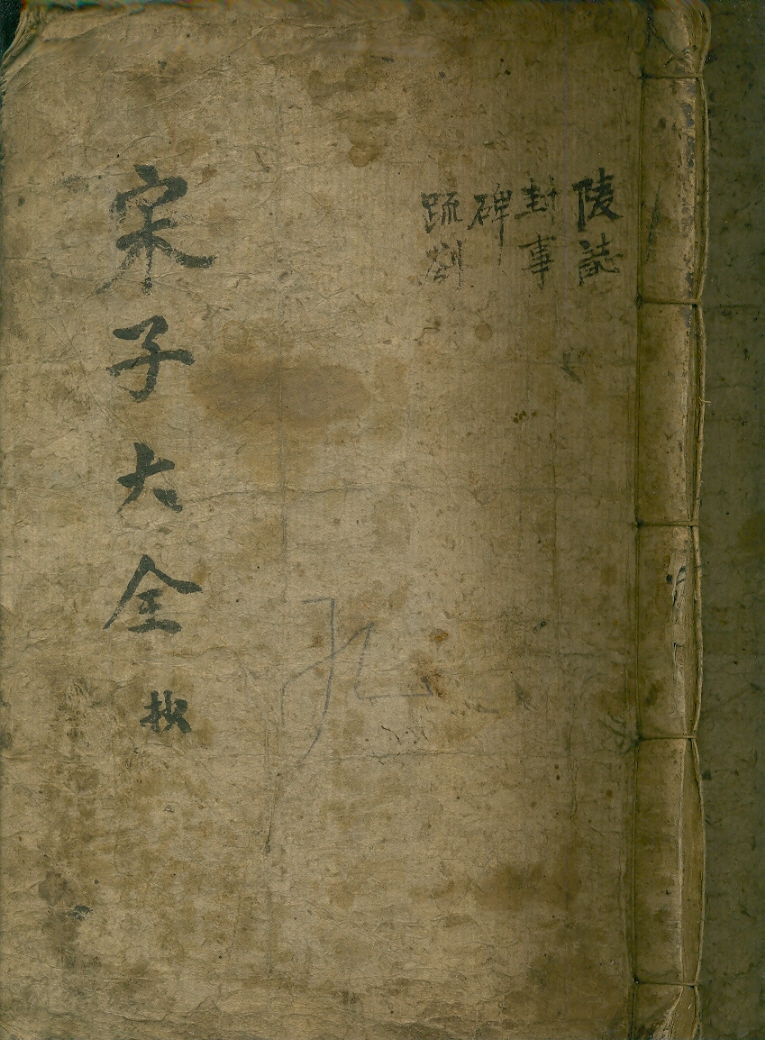 陵誌
封事
碑
疏劄
宋子大全 抄